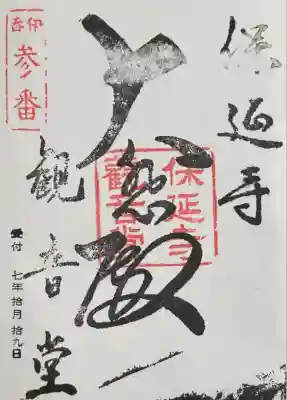 保延寺
大悲殿
観音堂
伊呂
参番
保延寺
観音堂
受付 七年拾月拾九日